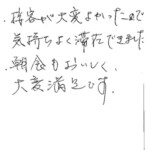 ・接客が大変よかったので
気持ちよく滞在できました
朝食もおいしく、
大変満足です。